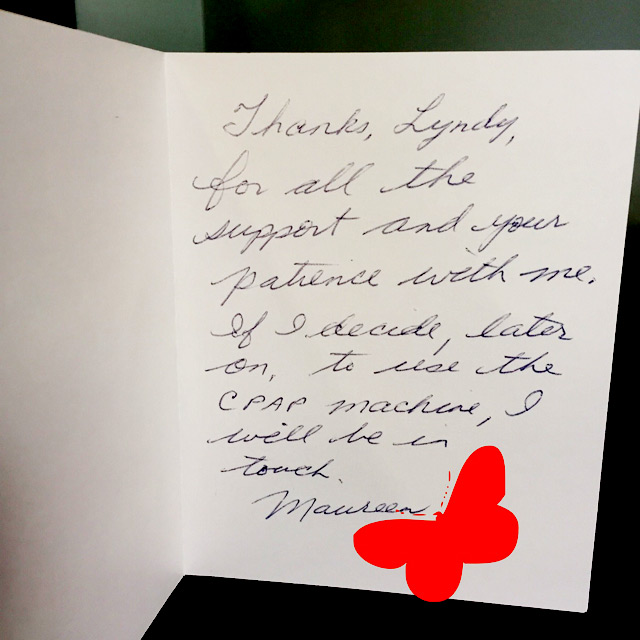 Thanks, Lyndy,
for all the
support and your
patience with me.
If I decide, later
on, to use the
CPAP machine, I
will be in
touch.
Maureen